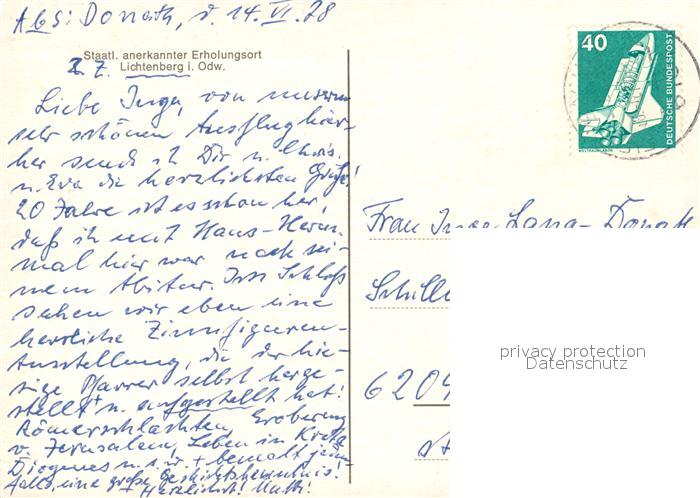 Abs: Donath, d. 14. VI. 78
Staatl. anerkannter Erholungsort
z. Z. Lichtenberg i. Odw.
Liebe Inge, von unserem
sehr schönen Ausflug hier-
her send ich Dir u. Chris.
u. Eva die herzlichsten Grüße!
20 Jahre ist es schon her,
daß ich mit Hans-Herm.
mal hier war nach sei-
nem Abitur. Im Schloß
sahen wir eben eine
herrliche Zinnfiguren-
Ausstellung, die der hie-
sige Pfarrer selbst herge-
stellt u. aufgestellt hat!
Römerschlachten, Eroberung
v. Jerusalem, Leben in
Diogenes u.s.w. + bemalt
Alles eine große Geschichtskenntnis!
Herzlichst! Mutti!
40
DEUTSCHE BUNDESPOST
WELTRAUMLABOR
Frau Inge Lang-Donath
Schill
6204
privacy protection
Datenschutz